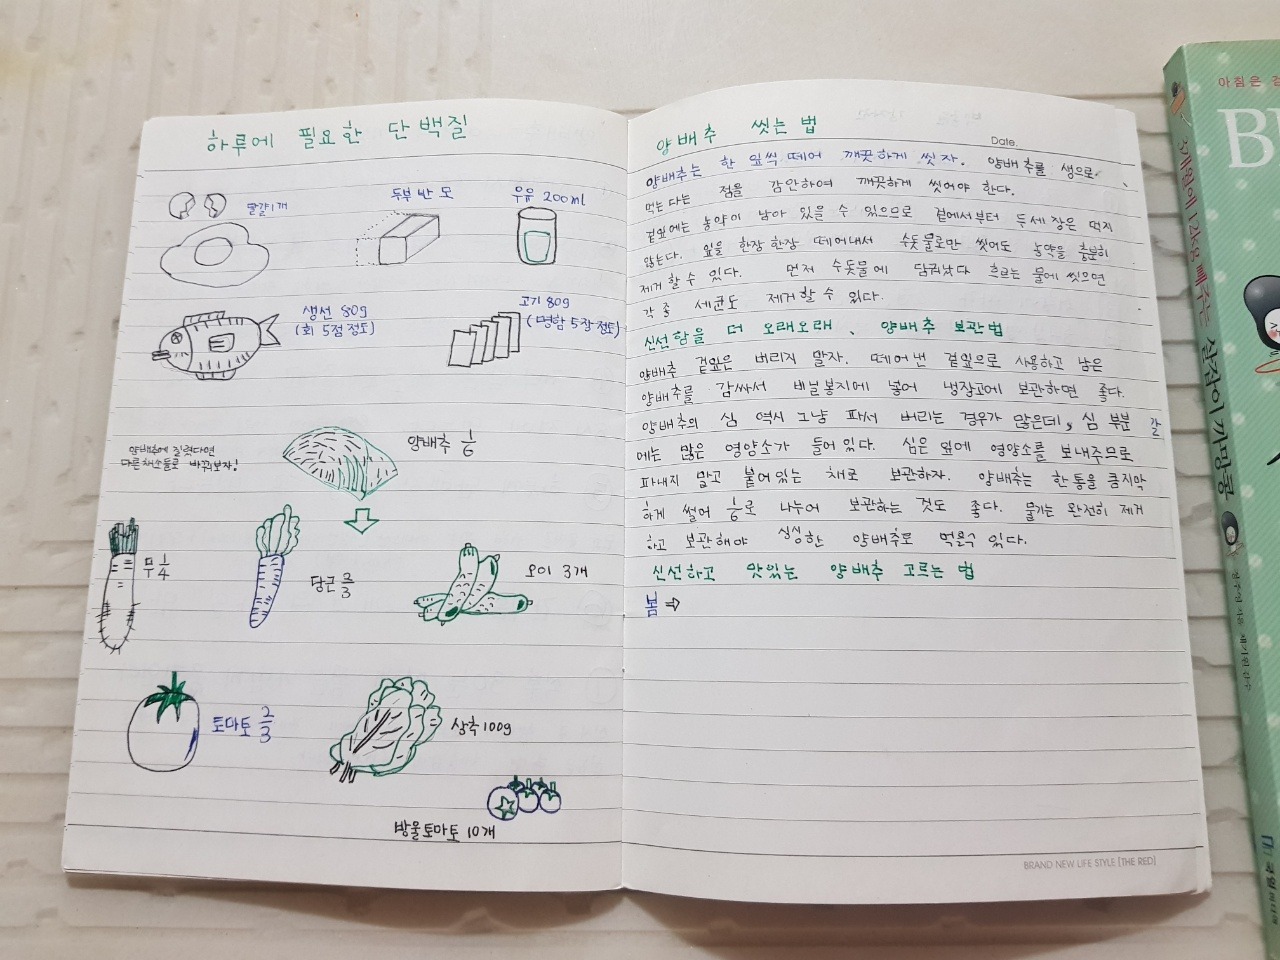 하루에 필요한 단백질
달걀1개
두부 반 모
우유 200ml
생선 80g
(회 5점 정도)
고기 80g
(명함 5장 정도)
양배추에 질렸다면
다른채소들로 바꿔보자!
양배추 1/6
무 1/4
당근 2/3
오이 3개
토마토 2/3
상추 100g
방울토마토 10개
양배추 씻는 법
Date.
양배추는 한 잎씩 떼어 깨끗하게 씻자. 양배추를 생으로
먹는다는 점을 감안하여 깨끗하게 씻어야 한다.
겉잎에는 농약이 남아 있을 수 있으므로 겉에서부터 두세장은 먹지
않는다. 잎을 한장한장 떼어내서 수돗물로만 씻어도 농약을 충분히
제거할 수 있다. 먼저 수돗물에 담궈놨다 흐르는 물에 씻으면
각종 세균도 제거할 수 있다.
신선함을 더 오래오래、 양배추 보관법
양배추 겉잎은 버리지 말자. 떼어낸 겉잎으로 사용하고 남은
양배추를 감싸서 비닐봉지에 넣어 냉장고에 보관하면 좋다.
양배추의 심 역시 그냥 파서 버리는 경우가 많은데, 심 부분
에는 많은 영양소가 들어있다. 심은 잎에 영양소를 보내주므로
파내지 말고 붙어있는 채로 보관하자. 양배추는 한통을 큼지막
하게 썰어 1/6로 나누어 보관하는 것도 좋다. 물기는 완전히 제거
하고 보관해야 싱싱한 양배추로 먹을수 있다.
신선하고 맛있는 양배추 고르는 법
봄 ⇒
BRAND NEW LIFE STYLE [THE RED]
아침은
3개월에 12kg 빼주는 살잡이 까망콩